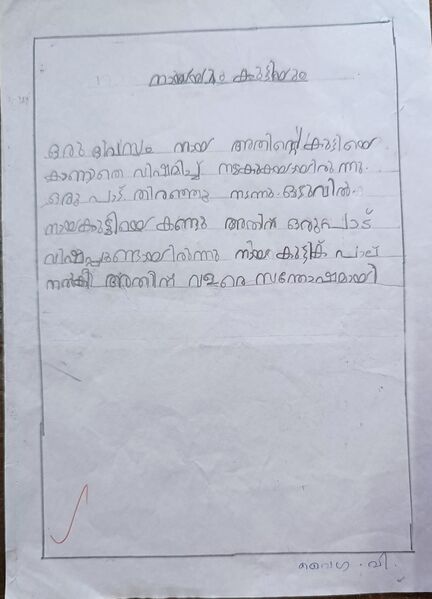 നായയും കുട്ടിയും
ഒരു ദിവസം നായ അതിന്റെ കുട്ടിയെ
കാണാതെ വിഷമിച്ച് നടക്കുകയായിരുന്നു.
ഒരു പാട് തിരഞ്ഞു നടന്നു. ഒടുവിൽ
നായകുട്ടിയെ കണ്ടു അതിന് ഒരുപാട്
വിഷപ്പുണ്ടായിരുന്നു നായ കുട്ടിക്ക് പാല്
നൽകി അതിന് വളരെ സന്തോഷമായി
വൈഗ . വി.